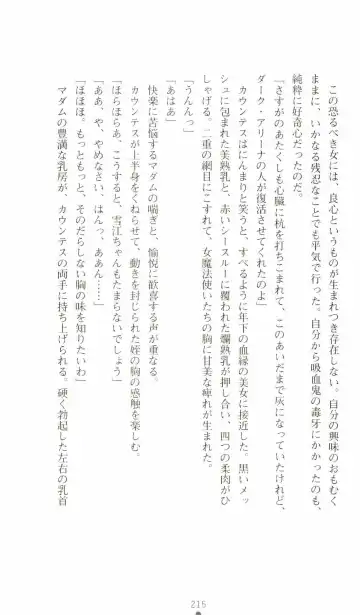 この恐るべき女には、良心というものが生まれつき存在しない。自分の興味のおもむく
ままに、いかなる残忍なことでも平気で行った。自分から吸血鬼の毒牙にかかったのも、
純粋に好奇心だったのだ。
「さすがのあたくしも心臓に杭を打ちこまれて、このあいだまで灰になっていたけれど、
ダーク・アリーナの人が復活させてくれたのよ」
カウンテスはにんまりと笑うと、すべるように年下の血縁の美女に接近した。黒いメッ
シュに包まれた美熟乳と、赤いシースルーに覆われた爛熟乳が押し合い、四つの柔肉がひ
しゃげる。二重の網目にこすれて、女魔法使いたちの胸に甘美な痺れが生まれた。
「うんんっ」
「あはあ」
快楽に苦悩するマダムの喘ぎと、愉悦に歓喜する声が重なる。
カウンテスが上半身をくねらせて、動きを封じられた姪の胸の感触を楽しむ。
「ほらほらあ、こうすると、雪江ちゃんもたまらないでしょう」
「ああ、や、やめなさい、はんっ、ああん……」
「ほほほ。もっともっと、そのだらしない胸の味を知りたいわ」
マダムの豊満な乳房が、カウンテスの両手に持ち上げられる。硬く勃起した左右の乳首
215